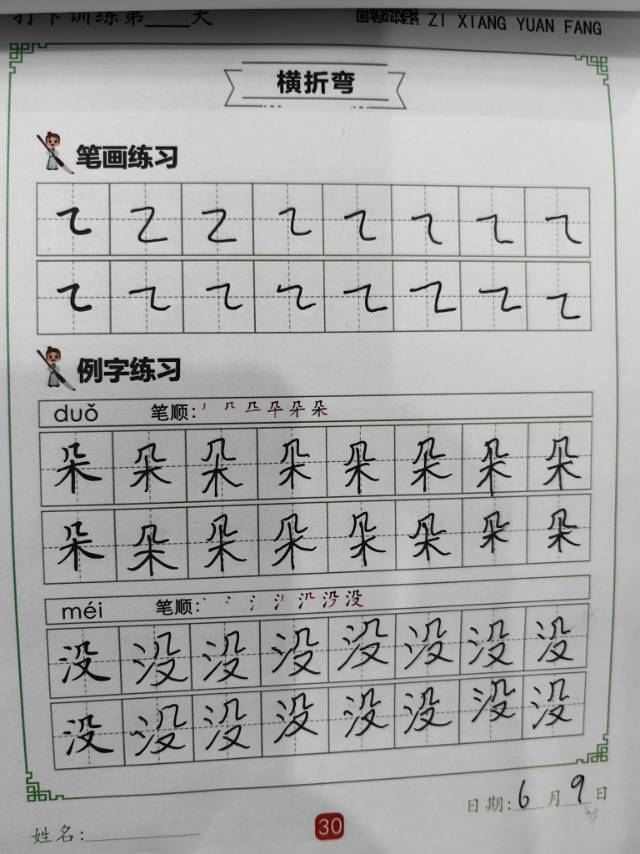 打卡训练第____天
ZI XIANG YUAN FANG
横折弯
笔画练习
例字练习
duǒ 笔顺:
朵 朵 朵 朵 朵 朵 朵 朵
朵 朵 朵 朵 朵 朵 朵 朵
méi 笔顺:
没 没 没 没 没 没 没 没
没 没 没 没 没 没 没 没
日期: 6 月 9 日
姓名:
30